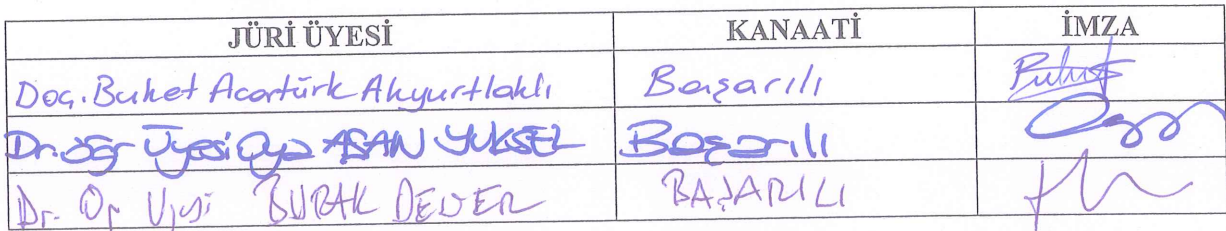 JÜRİ ÜYESİ KANAATİ İMZA
Doç. Buket Acartürk Akyurtlaklı Başarılı
Dr. Öğr Üyesi Oya ASAN YUKSEL Başarılı
Dr. Üyesi BURAK BAŞARILI